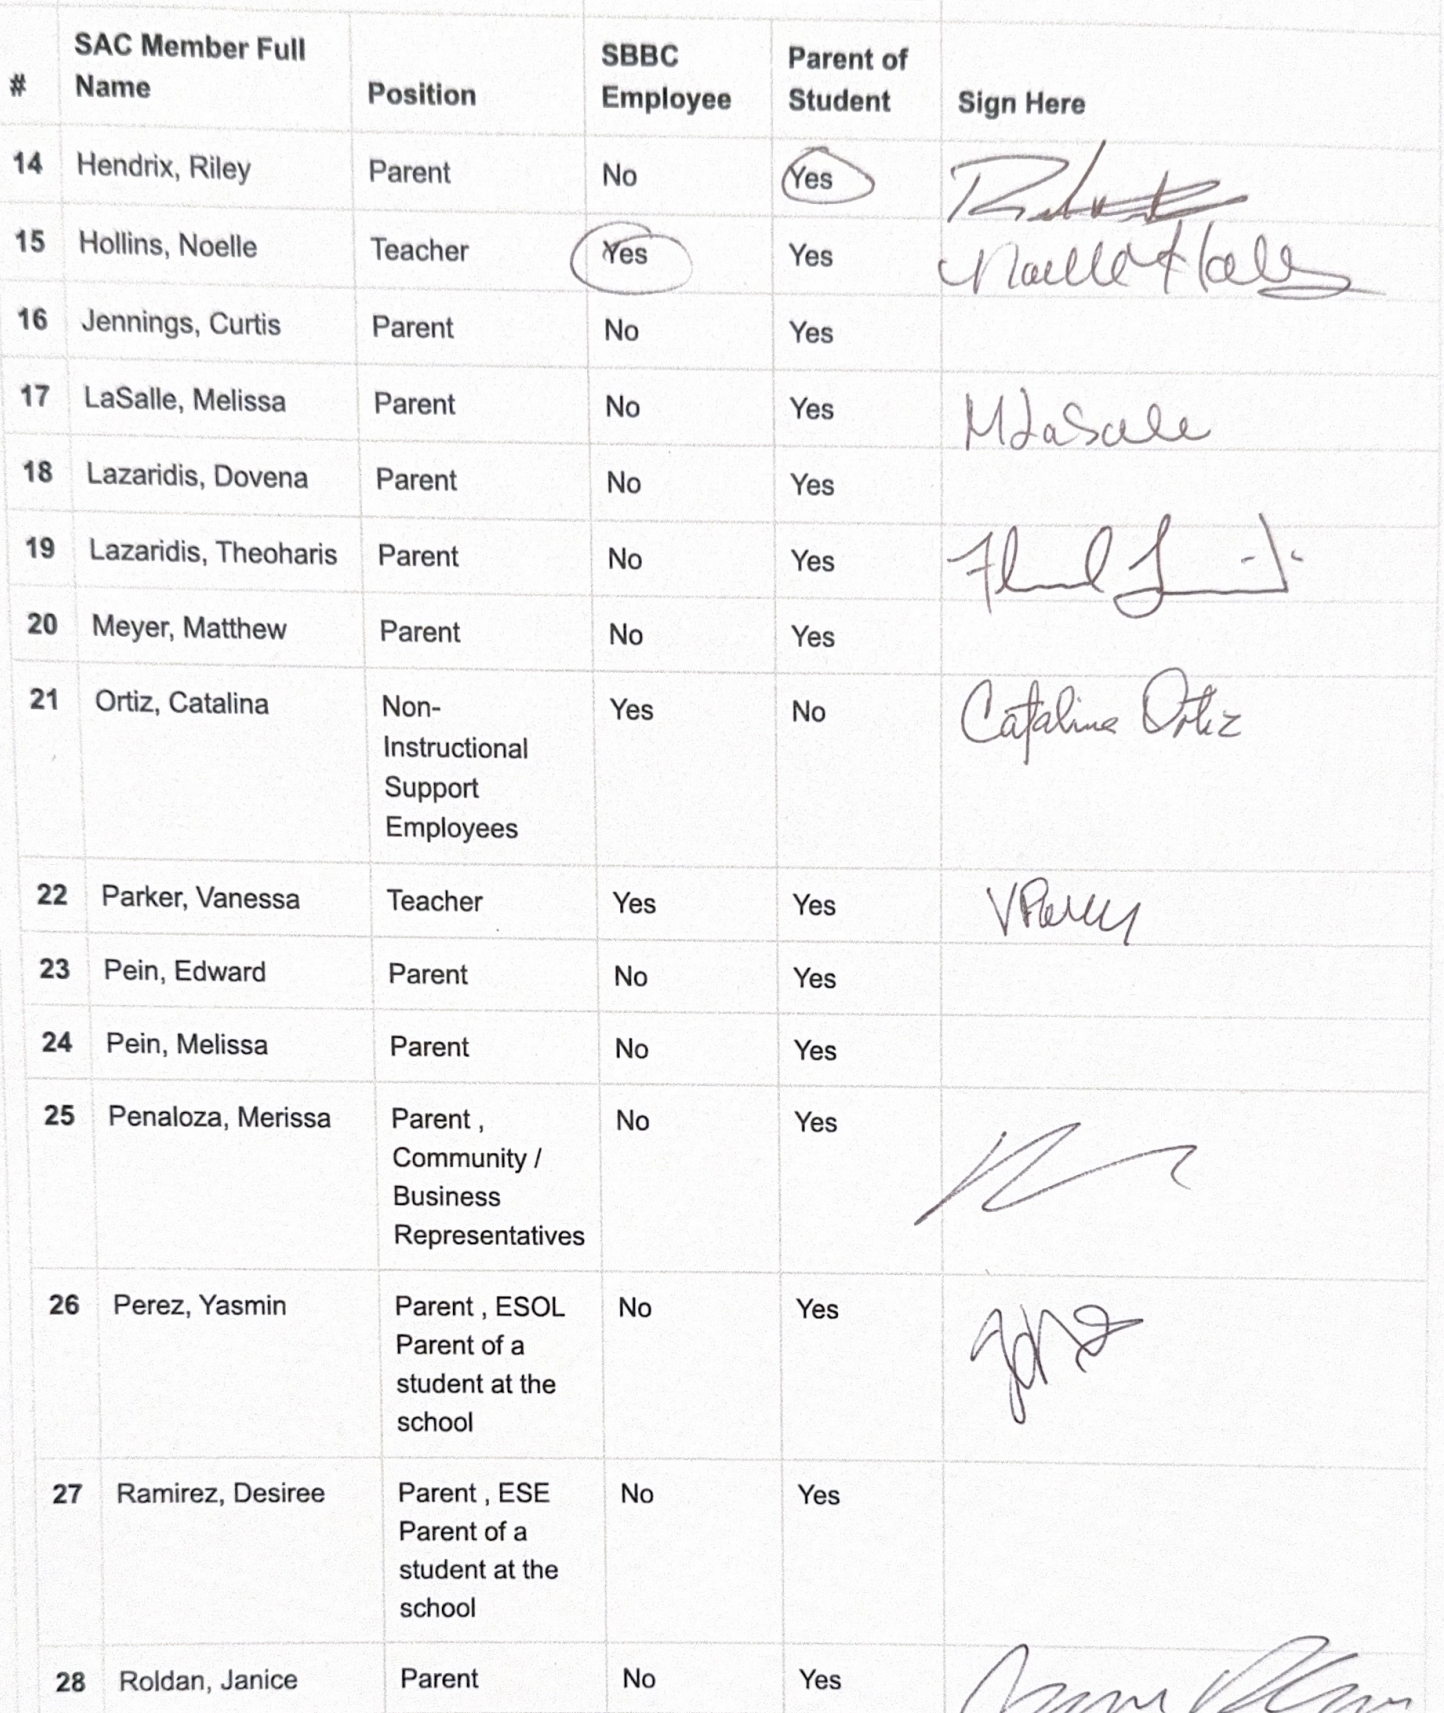 # SAC Member Full Name Position SBBC Employee Parent of Student Sign Here
14 Hendrix, Riley Parent No Yes
15 Hollins, Noelle Teacher Yes Yes Noelle
16 Jennings, Curtis Parent No Yes
17 LaSalle, Melissa Parent No Yes M LaSalle
18 Lazaridis, Dovena Parent No Yes
19 Lazaridis, Theoharis Parent No Yes
20 Meyer, Matthew Parent No Yes
21 Ortiz, Catalina Non- Yes No Catalina Ortiz
Instructional
Support
Employees
22 Parker, Vanessa Teacher Yes Yes
23 Pein, Edward Parent No Yes
24 Pein, Melissa Parent No Yes
25 Penaloza, Merissa Parent , No Yes
Community /
Business
Representatives
26 Perez, Yasmin Parent , ESOL No Yes
Parent of a
student at the
school
27 Ramirez, Desiree Parent , ESE No Yes
Parent of a
student at the
school
28 Roldan, Janice Parent No Yes